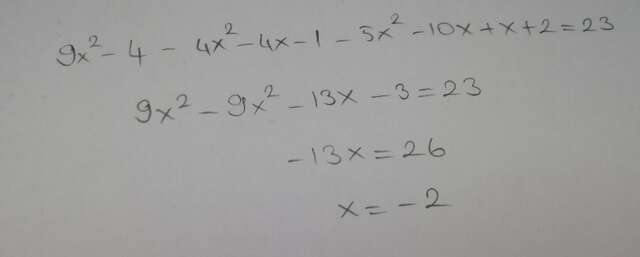 9x² - 4 - 4x² - 4x - 1 - 5x² - 10x + x + 2 = 23
9x² - 9x² - 13x - 3 = 23
-13x = 26
x = -2